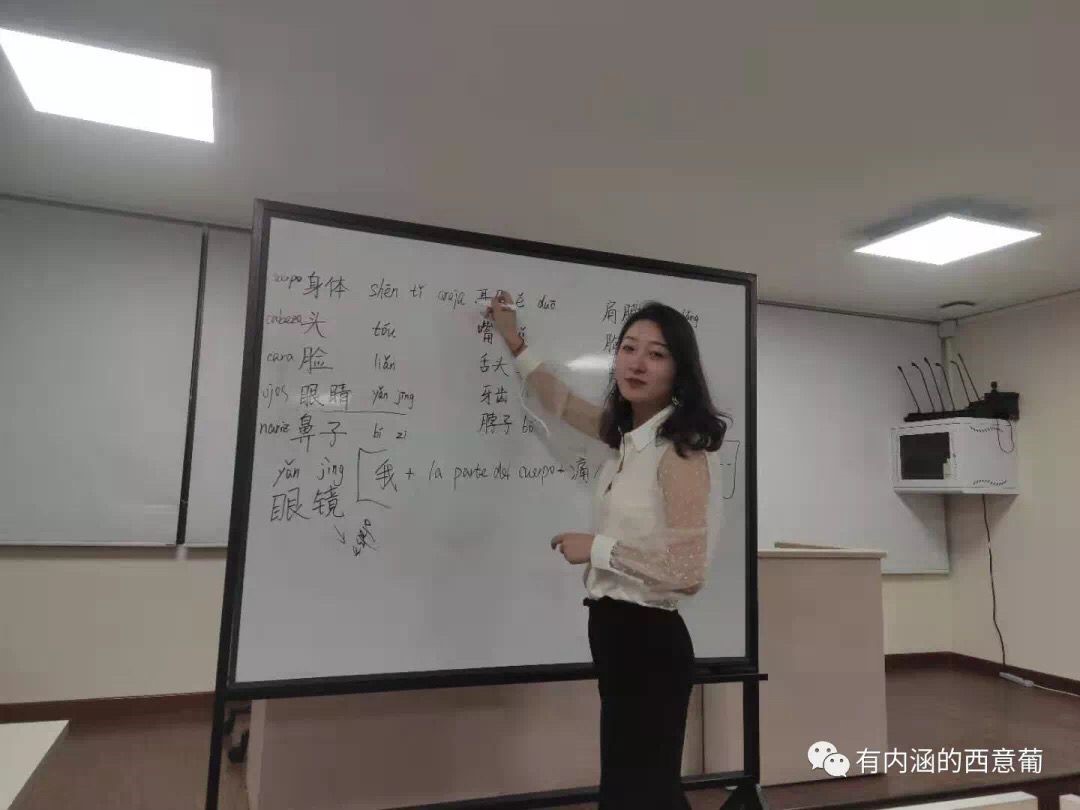 cuerpo 身体 shēn tǐ oreja 耳朵 duō 肩
cabeza 头 tóu 嘴
cara 脸 liǎn 舌头
ojos 眼睛 yǎn jīng 牙齿
nariz 鼻子 bí zi 脖子 bó
yǎn jìng [我 + la parte del cuerpo + 痛
眼镜
有内涵的西意葡